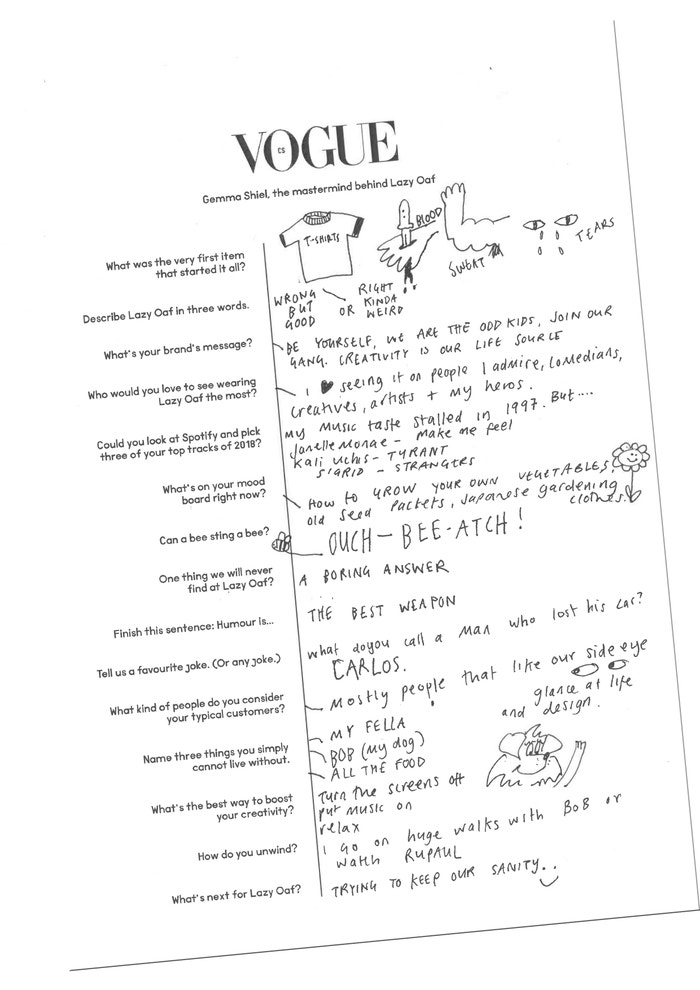 VOGUE
CS
Gemma Shiel, the mastermind behind Lazy Oaf
What was the very first item
that started it all?
T-SHIRTS
BLOOD
SWEAT
TEARS
Describe Lazy Oaf in three words.
WRONG
BUT
GOOD
OR
RIGHT
KINDA
WEIRD
What's your brand's message?
BE YOURSELF, WE ARE THE ODD KIDS, JOIN OUR
GANG. CREATIVITY IS OUR LIFE SOURCE
Who would you love to see wearing
Lazy Oaf the most?
I ♥ seeing it on people I admire, comedians,
creatives, artists + my heros.
Could you look at Spotify and pick
three of your top tracks of 2018?
My music taste stalled in 1997. But....
Janelle Monae - Make me feel
Kali Uchis - TYRANT
SIGRID - STRANGERS
What's on your mood
board right now?
How to GROW YOUR OWN VEGETABLES!
old seed packets, Japanese gardening
clothes.
Can a bee sting a bee?
OUCH-BEE-ATCH!
One thing we will never
find at Lazy Oaf?
A BORING ANSWER
Finish this sentence: Humour is...
THE BEST WEAPON
Tell us a favourite joke. (Or any joke.)
what do you call a Man who lost his car?
CARLOS.
What kind of people do you consider
your typical customers?
Mostly people that like our side eye
glance at life
and design.
Name three things you simply
cannot live without.
MY FELLA
BOB (my dog)
ALL THE FOOD
What's the best way to boost
your creativity?
Turn the screens off
put music on
relax
How do you unwind?
I go on huge walks with BoB or
watch RUPAUL
What's next for Lazy Oaf?
TRYING TO KEEP OUR SANITY..